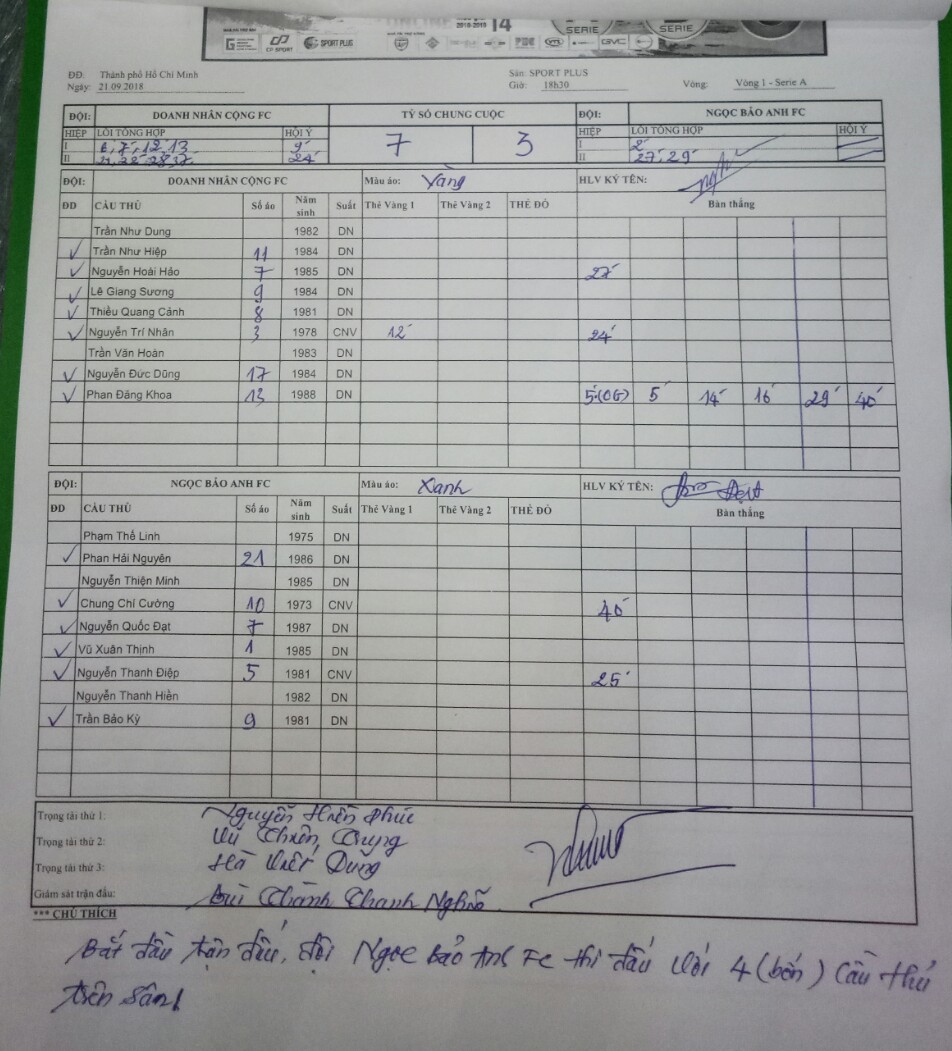 ONLINE 2018-2019 14
SERIE SERIE
CP SPORT SPORT PLUS GVC
ĐĐ: Thành phố Hồ Chí Minh Sân: SPORT PLUS
Ngày: 21.09.2018 Giờ: 18h30 Vòng: Vòng 1 - Serie A
ĐỘI: DOANH NHÂN CỘNG FC TỶ SỐ CHUNG CUỘC ĐỘI: NGỌC BẢO ANH FC
HIỆP LỖI TỔNG HỢP HỘI Ý 7 3 HIỆP LỖI TỔNG HỢP HỘI Ý
I 6, 7, 12, 13 9' I 2'
II 24' II 27', 29'
ĐỘI: DOANH NHÂN CỘNG FC Màu áo: Vàng HLV KÝ TÊN:
ĐD CẦU THỦ Số áo Năm sinh Suất Thẻ Vàng 1 Thẻ Vàng 2 THẺ ĐỎ Bàn thắng
Trần Như Dung 1982 DN
✓ Trần Như Hiệp 11 1984 DN
✓ Nguyễn Hoài Hảo 7 1985 DN 27'
✓ Lê Giang Sương 9 1984 DN
✓ Thiều Quang Cảnh 8 1981 DN
✓ Nguyễn Trí Nhân 3 1978 CNV 12' 24'
Trần Văn Hoàn 1983 DN
✓ Nguyễn Đức Dũng 17 1984 DN
✓ Phan Đăng Khoa 13 1988 DN 5'(OG) 5' 14' 16' 29' 40'
ĐỘI: NGỌC BẢO ANH FC Màu áo: Xanh HLV KÝ TÊN:
ĐD CẦU THỦ Số áo Năm sinh Suất Thẻ Vàng 1 Thẻ Vàng 2 THẺ ĐỎ Bàn thắng
Phạm Thế Linh 1975 DN
✓ Phan Hải Nguyên 21 1986 DN
Nguyễn Thiện Minh 1985 DN
✓ Chung Chí Cường 10 1973 CNV 40'
✓ Nguyễn Quốc Đạt 7 1987 DN
✓ Vũ Xuân Thịnh 1 1985 DN
✓ Nguyễn Thanh Điệp 5 1981 CNV 25'
Nguyễn Thanh Hiền 1982 DN
✓ Trần Bảo Kỳ 9 1981 DN
Trọng tài thứ 1: Nguyễn Hiền Phúc
Trọng tài thứ 2: Vũ Chiến Chung
Trọng tài thứ 3: Hà Việt Dũng
Giám sát trận đấu: Bùi Thành Thanh Nghĩa
*** CHÚ THÍCH
Bắt đầu trận đấu, đội Ngọc Bảo Anh Fc thi đấu với 4 (bốn) cầu thủ
trên sân.